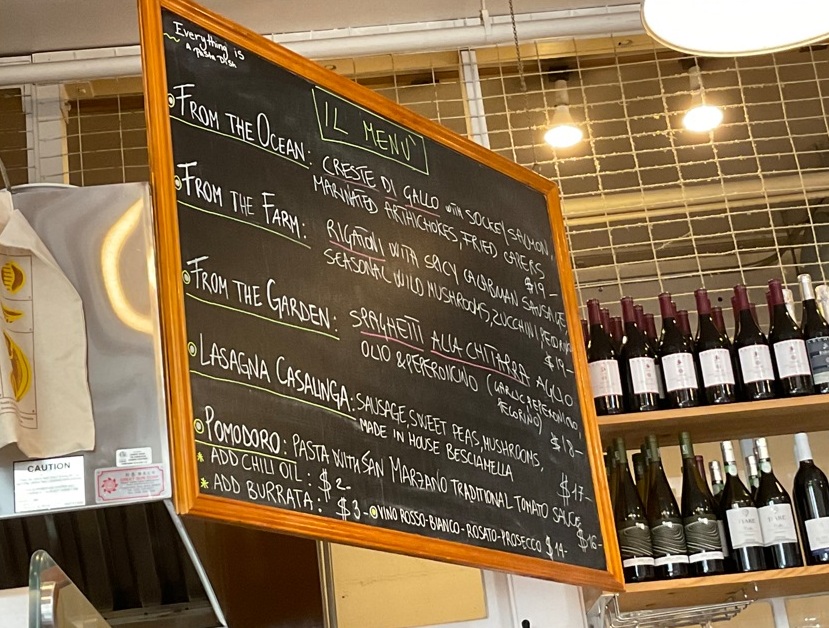 Everything is
a pasta dish
IL MENÙ
FROM THE OCEAN: CRESTE DI GALLO with SOCKEY SALMON,
MARINATED ARTHICHOKES, FRIED CAPERS
$19-
FROM THE FARM: RIGATONI WITH SPICY CALABRIAN SAUSAGE,
SEASONAL WILD MUSHROOMS, ZUCCHINI
$19-
FROM THE GARDEN: SPAGHETTI ALLA CHITARRA AGLIO
OLIO & PEPERONCINO (GARLIC, PEPERONCINO,
PECORINO) $18-
LASAGNA CASALINGA: SAUSAGE, SWEET PEAS, MUSHROOMS,
MADE IN HOUSE BESCIAMELLA $17-
POMODORO: PASTA WITH SAN MARZANO TRADITIONAL TOMATO SAUCE
$16-
* ADD CHILI OIL: $2-
* ADD BURRATA: $3-
VINO ROSSO-BIANCO-ROSATO-PROSECCO $14-
CAUTION